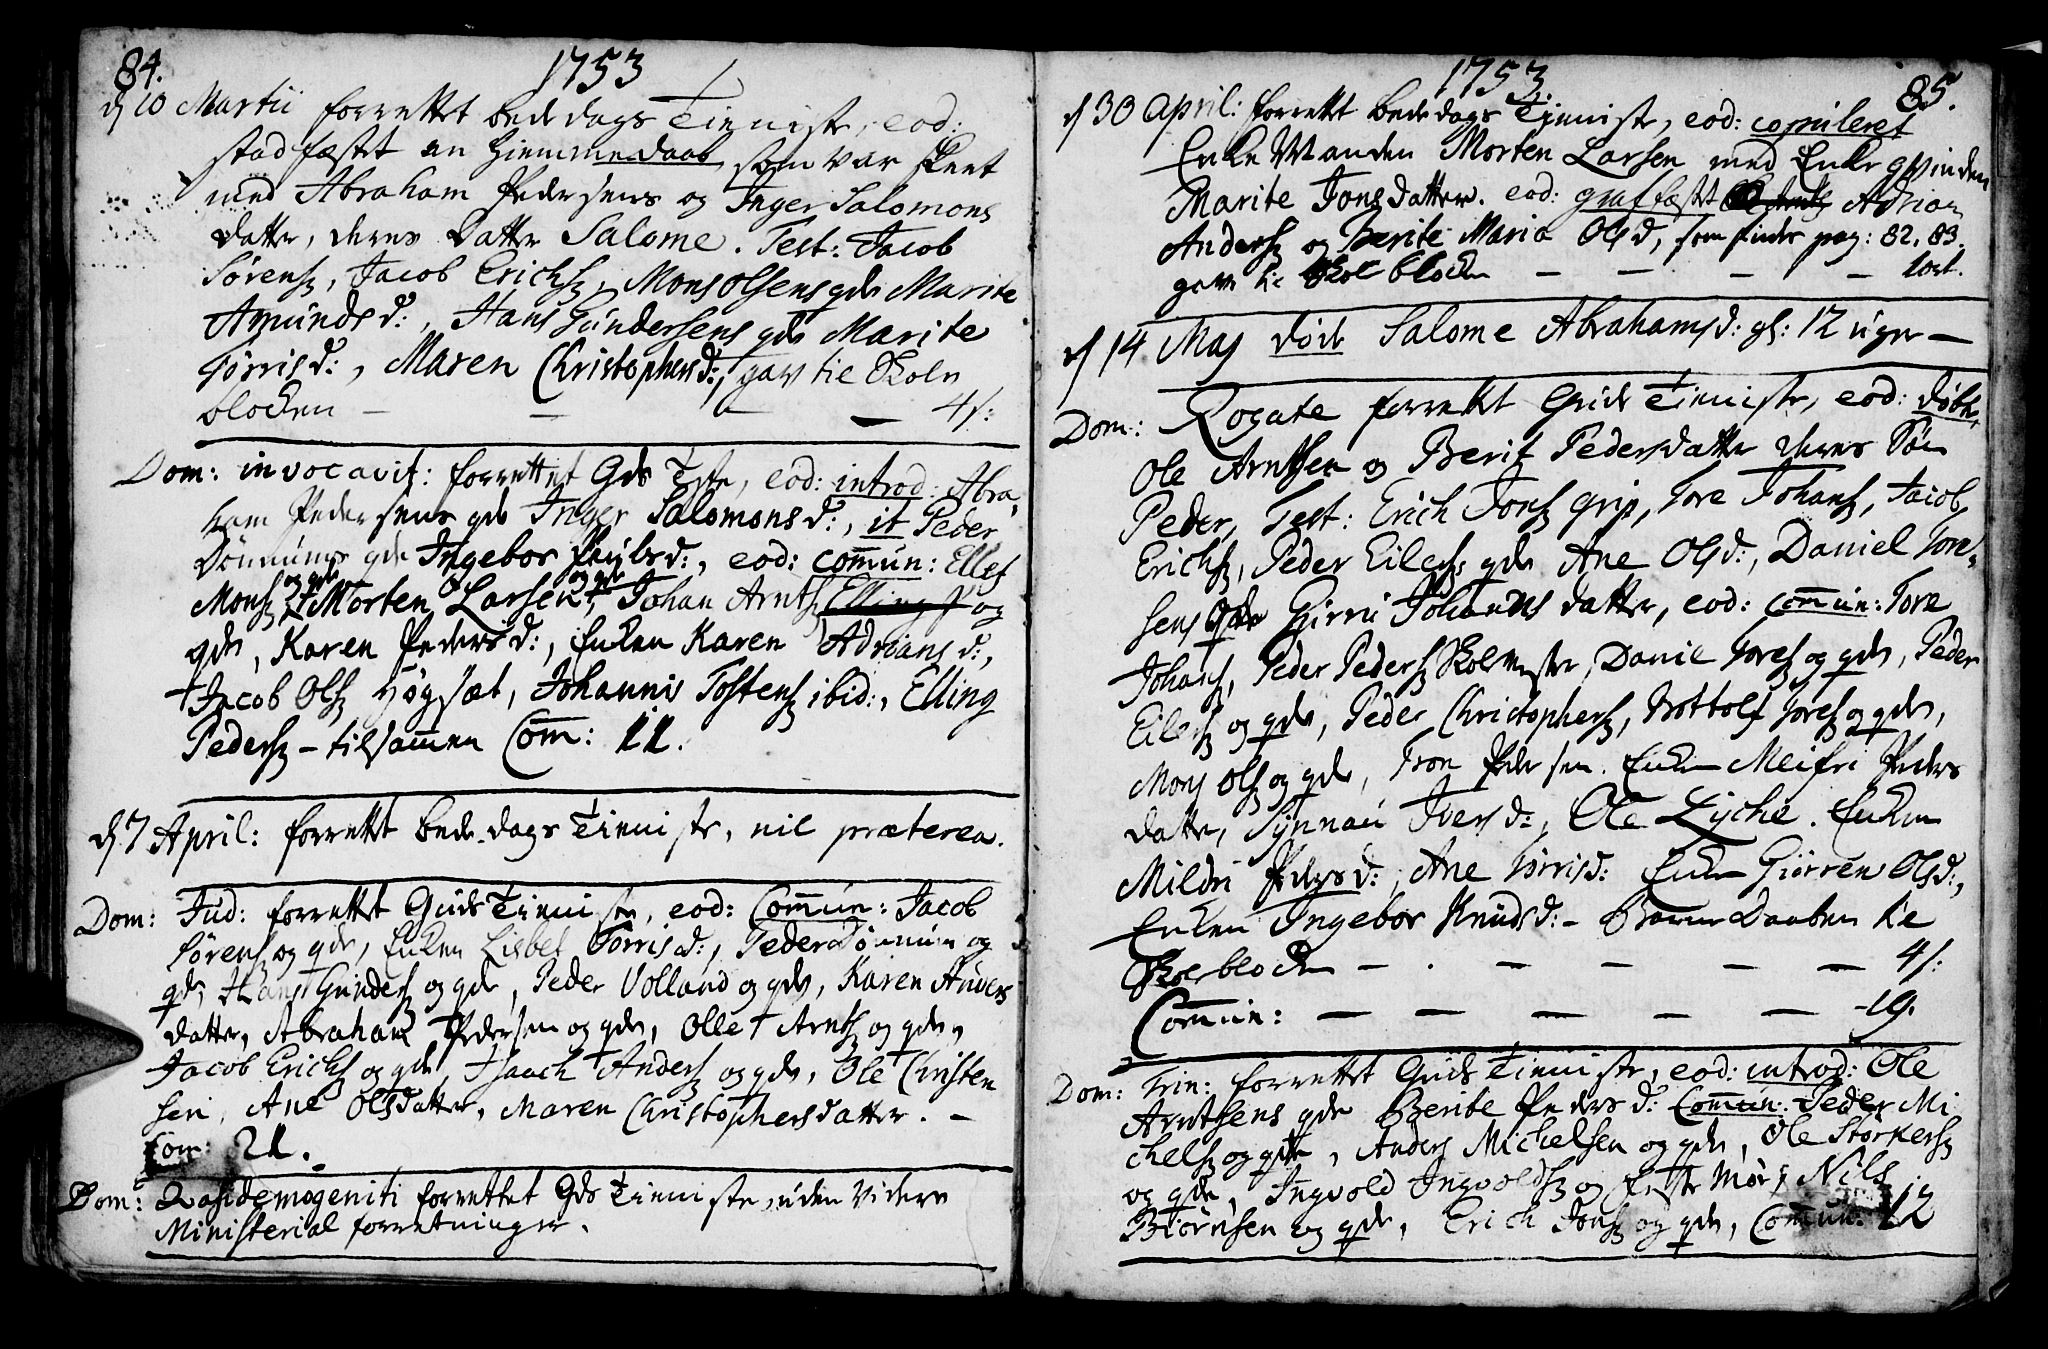 84.
1753
d 10 Martii forrettet bededags Tieniste, eod:
stadfæstet en Hiemmedaab som var skeet
med Abraham Pedersens og Inger Salomons
datter, deres datter Salome. Test: Jacob
Sørens, Jacob Erichs, Mons Olsens qde Marite
Amunds d:, Hans Gundersens qde Marite
Torris d:, Maren Christophers d:, gav til Skole
blocken — — — — 4 s:
Dom: invocavit: forrettet Gds Tste, eod: introd: Abra-
ham Pedersens qde Inger Salomons d:, it Peder
Dønnums qde Ingebor d:, eod: commun: Ellef
Mons og qde, Morten Larsen og qde, Johan Arnts Elling P og
qde, Karen Peders d:, Enken Karen Adrians d:,
Jacob Ols Høgsæt, Johannis Tostens ibid:, Elling
Peders — tilsammen Com: 11.
d 7 April: forrettet bededags Tieniste, nil præterea.
Dom: Jud: forrettet Guds Tieniste, eod: Commun: Jacob
Sørens og qde, Enken Lisbet Torris d:, Peder Dønnum og
qde, Hans Gunders og qde, Peder Volland og qde, Karen Anders
datter, Abraham Pedersen og qde, Olle Arnts og qde,
Jacob Erichs og qde, Isaach Anders og qde, Ole Christen
sen, Ane Olsdatter, Maren Christophersdatter. —
Com: 21.
Dom: Qvasidemogeniti forrettet Gds Tieniste, uden videre
Ministerial forretninger.
1753.
85.
d 30 April: forrettet bededags Tieniste, eod: copuleret
Enke Manden Morten Larsen med Enke qvinden
Marite Jonsdatter. eod: graffæstet Adrian
Anders og Berite Maria Ols d, som findes pag: 82, 83.
gave til Skolblocken — — — — 1 ort.
d 14 Maj døde Salome Abrahams d: gl: 12 uger —
Dom: Rogate forrettet Guds Tieniste, eod: døbt,
Ole Arntsen og Berit Pedersdatter deres Søn
Peder, Test: Erich Jons grip, Tore Johans, Jacob
Erichs, Peder Eilers qde Ane Ols d:, Daniel Tore-
sens qde Girru Johannsdatter, eod: Commun: Tore
Johans, Peder Peders Skolmester, Daniel Tores og qde, Peder
Eilers og qde, Peder Christophers, Bottolf Tores og qde,
Mons Ols og qde, Tron Pedersen. Enken Meifri Peders
datter, Synnau Ivers d:, Ole Lyche. Enken
Mildri Peders d:, Ane Torris d: Enken Giørren Ols d:,
Enken Ingebor Knuds d:— Barne Daaben til
Skolblocken — . — — — — 4 s:
Commun: — — — — — 19.
Dom: Trin: forrettet Guds Tieniste, eod: introd: Ole
Arntsens qde Berite Peders d: Commun: Peder Mi
chels og qde, Anders Michelsen og qde, Ole Storkers
og qde, Ingvold Ingvolds og Nils
Biørnsen og qde, Erich Jons og qde, Commun: 12